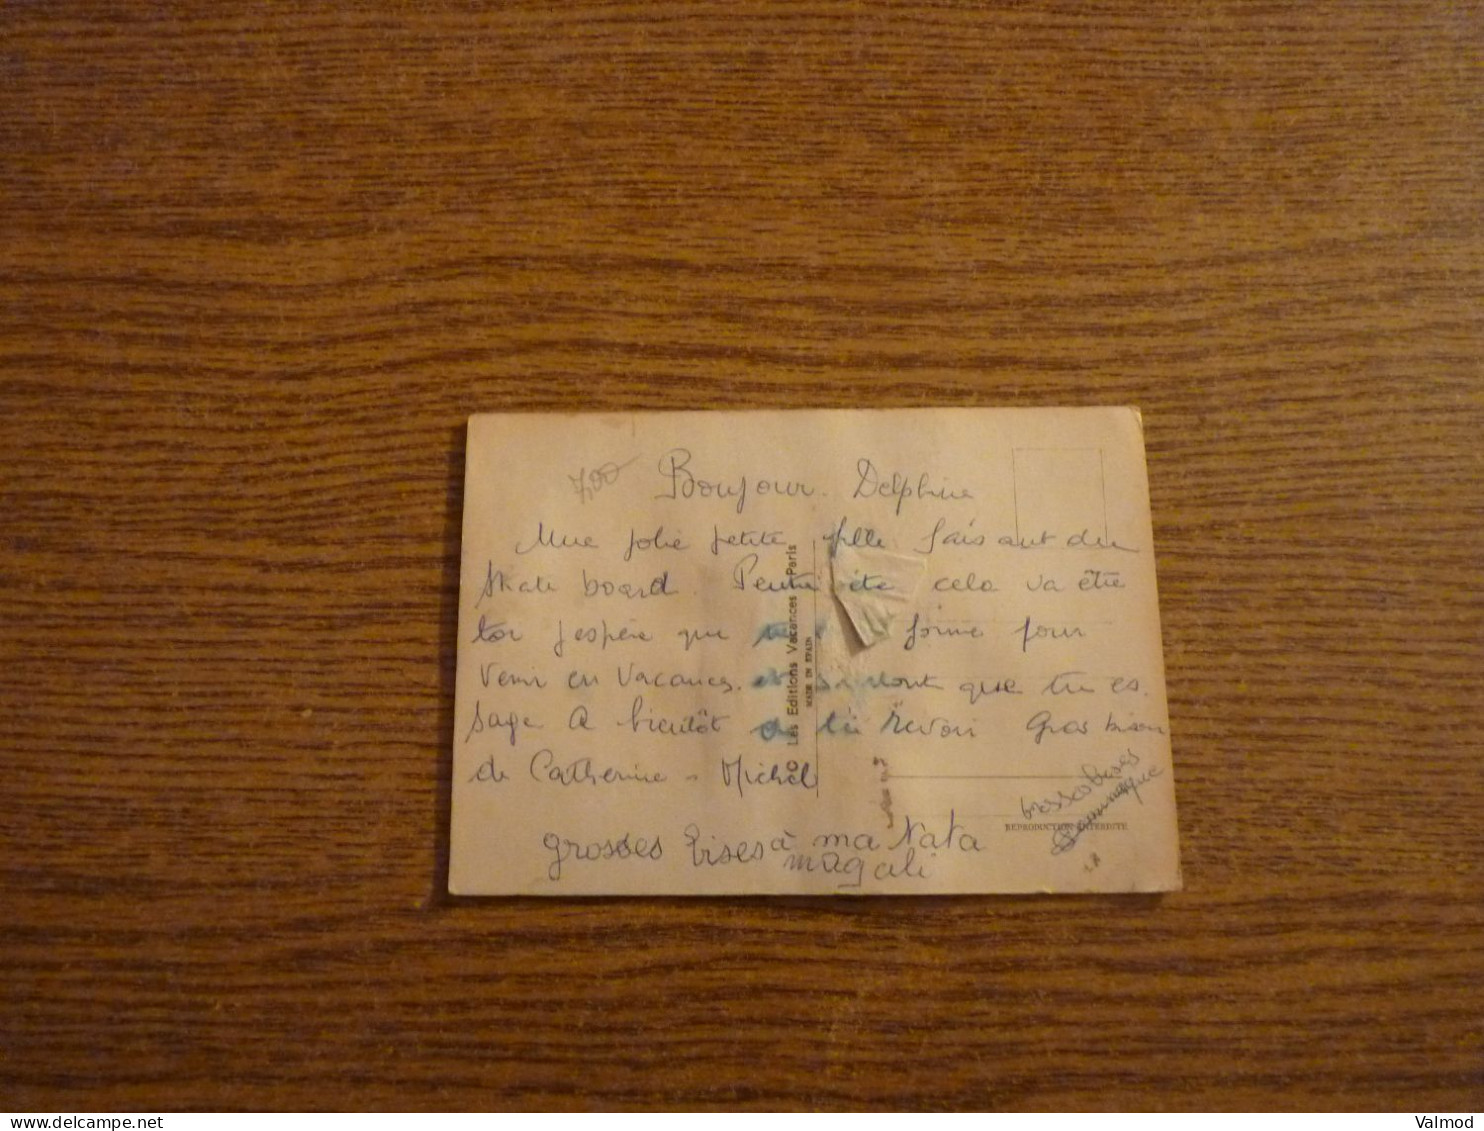 7,00
Bonjour. Delphine
Une jolie petite fille faisant du
skate board. Peutre ête cela va être
toi j'espère que forme pour
venir en vacances. et surtout que tu es
sage a bientôt de te revoir Gros bison
de Catherine - Michel
grosses bises
Dominique
grosses bises à ma Nata
magali
© Les Editions Vacances Paris
MADE IN SPAIN
REPRODUCTION INTERDITE
Valmod